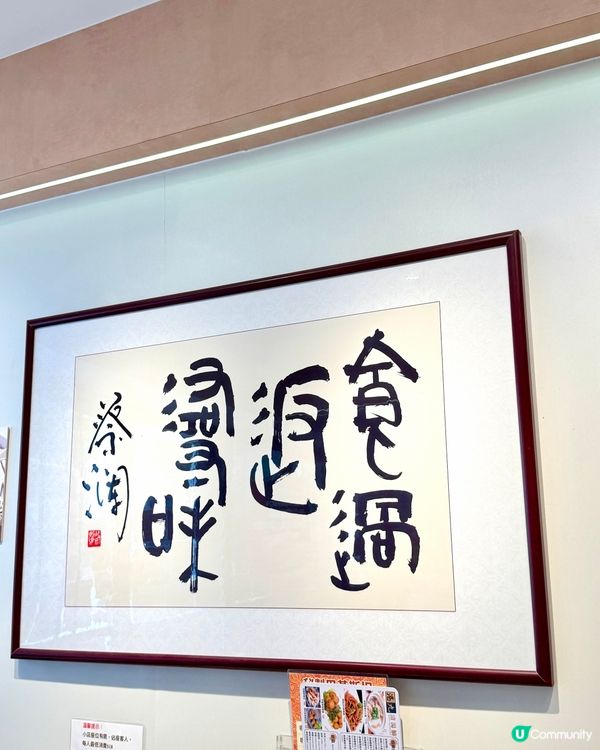 食過
返
尋味
蔡瀾
溫馨提示：
小店座位有限，佔座客人，
每人最低消費
U Community